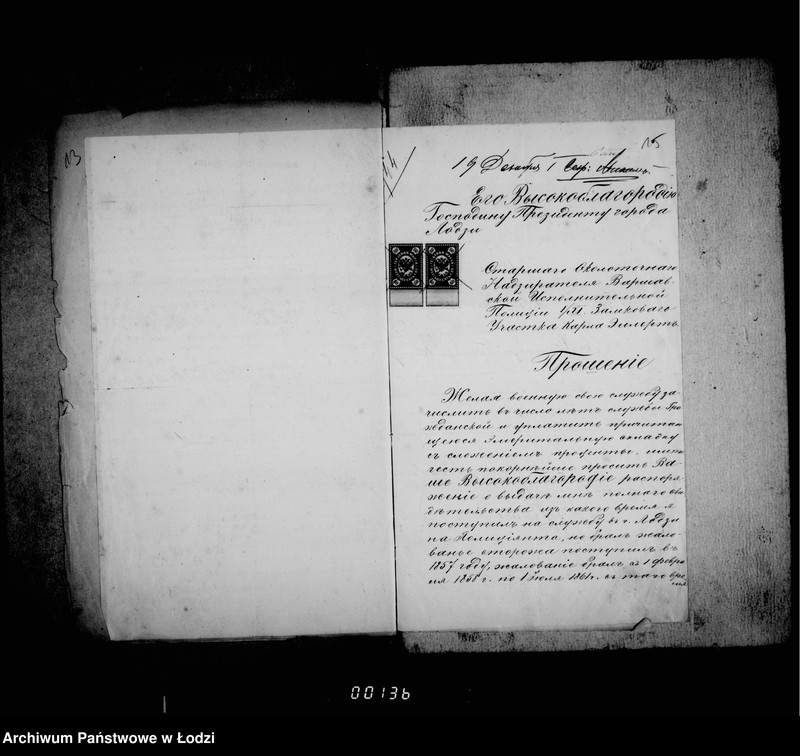 13
14
15
19 Декабря
Его Высокоблагородію
Господину Президенту города
Лодзи
Старшаго Околоточнаго
Надзирателя Варшав-
ской Исполнительной
Полиціи VII Замковаго
Участка Карла
Прошеніе
Желая военную свою службу за
числить въ число лѣтъ службы Гра
жданской и уплатить причитаю
щуюся Эмеритальную складку
съ сложеніемъ проценты, имѣю
честь покорнѣйше просить Ва
ше Высокоблагородіе распоря
женіе о выдачѣ мнѣ полнаго сви
дѣтельства изъ какого время я
поступилъ на службу въ г. Лодзи
на Полиціянта, но бралъ жало
ванье сторожа поступилъ въ
1857 году, жалованіе бралъ съ 1 Февра
ля 1858 г. по 1 Июля 1861 г. съ того вре
мя
00136
Archiwum Państwowe w Łodzi